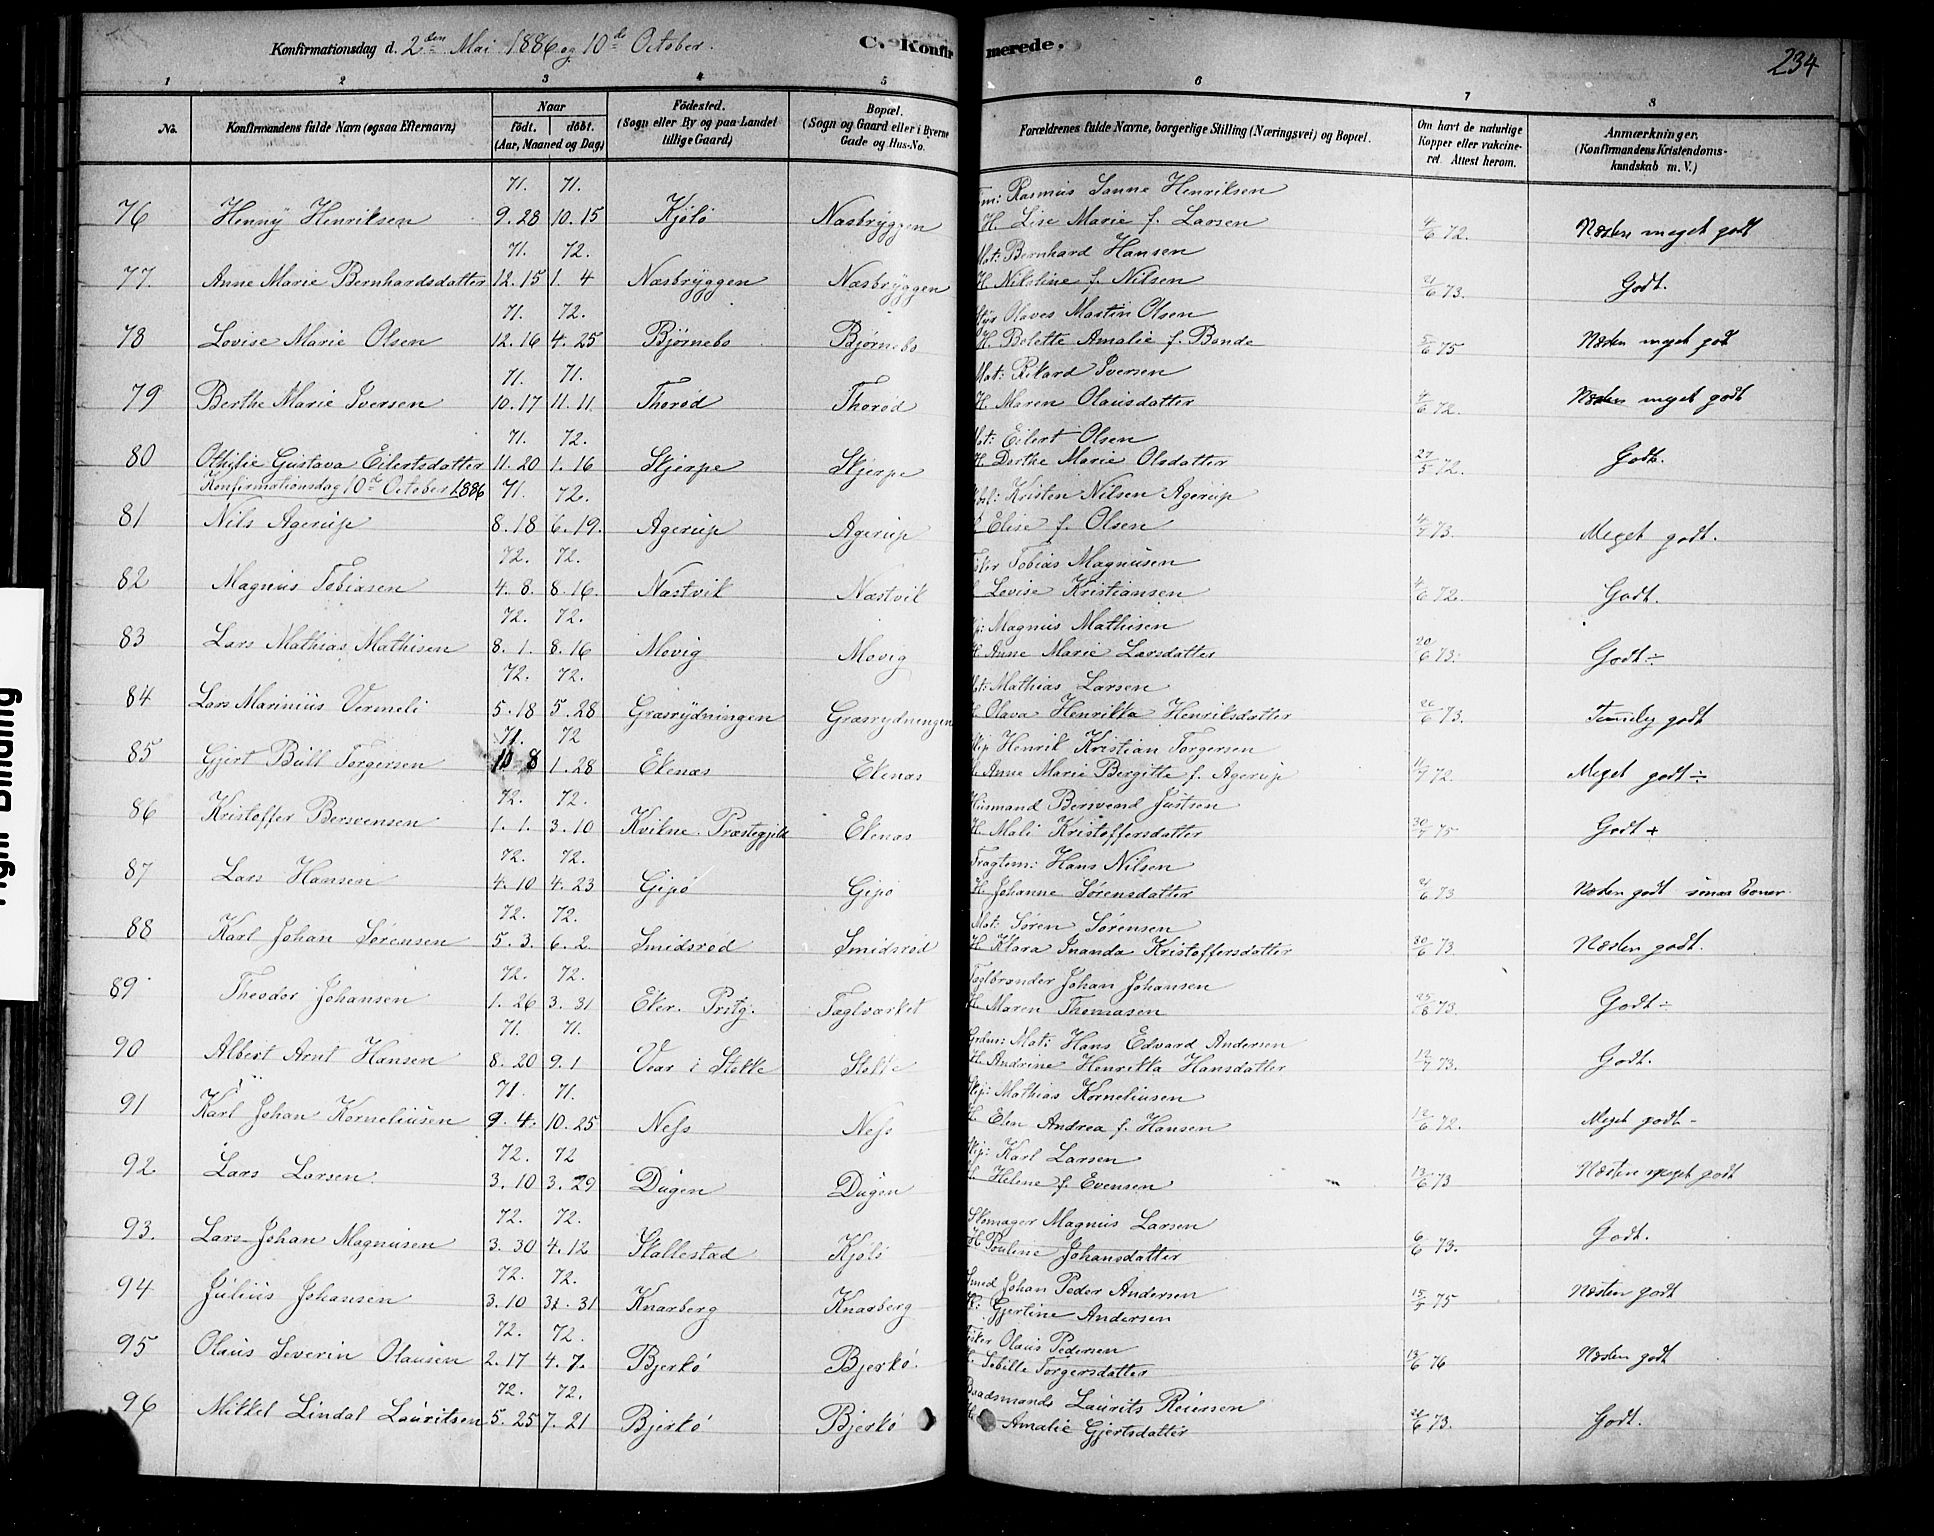 Konfirmationsdag d. 2den Mai 1886 og 10de October.
C. Konfirmerede.
234
1 2 3 4 5 6 7 8
No.
Konfirmandens fulde Navn (ogsaa Efternavn)
Naar
födt. döbt.
(Aar, Maaned og Dag)
Födested.
(Sogn eller By og paa Landet
tillige Gaard)
Bopæl.
(Sogn og Gaard eller i Byerne
Gade og Hus-No.
Forældrenes fulde Navne, borgerlige Stilling (Næringsvei) og Bopæl.
Om havt de naturlige
Kopper eller vakcine-
ret. Attest herom.
Anmærkninger.
(Konfirmandens Kristendoms-
kundskab m. V.)
71. 71. Rasmus Sanne Henriksen
76 Henny Henriksen 9.28 10.15 Kjölö Næsbryggen H. Lise Marie f. Larsen 4/6 72. Næsten meget godt
71. 72. Mat: Bernhard Hansen
77. Anne Marie Bernhardsdatter 12.15 1.4 Næsbryggen Næsbryggen H. Nikoline f. Nilsen 21/6 73. Godt.
71. 72. Olaves Martin Olsen
78 Lovise Marie Olsen 12.16 4.25 Bjørnebo Bjørnebo H. Bolette Amalie f. Bonde 5/6 75 Næsten meget godt
71. 71. Mat: Rikard Iversen
79 Berthe Marie Iversen 10.17 11.11 Thorød Thorød H. Maren Olausdatter 4/6 72. Næsten meget godt
71. 72. Mat: Eilert Olsen
80 Othilie Gustava Eilertsdatter 11.20 1.16 Skjerpe Skjerpe H. Dorthe Marie Olsdatter 27/5 72. Godt.
Konfirmationsdag 10de October 1886 71. 72. Kristen Nilsen Agerup
81 Nils Agerup 8.18 6.19. Agerup Agerup Elise f. Olsen 4/7 73. Meget godt.
72. 72. Tobias Magnusen
82 Magnus Tobiasen 4.8. 8.16 Næstvik Næstvik Lovise Kristiansen 4/6 72. Godt.
72. 72. Magnus Mathisen
83 Lars Mathias Mathisen 8.1. 8.16 Movig Movig H. Anne Marie Larsdatter 20/6 73. Godt ÷
72. 72. Mat: Mathias Larsen
84 Lars Marinius Vermeli 5.18 5.28 Græsrydningen Græsrydningen Olava Henrikka Henriksdatter 26/6 73. Temmelig godt
71. 72 Skip. Henrik Kristian Torgersen
85 Gjert Bull Torgersen 10 8 1.28 Ekenæs Ekenæs Anne Marie Bergitte f. Agerup 11/7 72. Meget godt ÷
72. 72. Husmand Bersvend Justsen
86 Kristoffer Bersvensen 1.1. 3.10 Kvikne Præstegjeld Ekenæs H. Mali Kristoffersdatter 30/7 75 Godt +
72. 72. Fragtem: Hans Nilsen
87 Lars Hansen 4.10 4.23 Gipö Gipö H. Johanne Sørensdatter 21/6 73 Næsten godt smaa Evner
72. 72. Mat: Søren Sørensen
88 Karl Johan Sørensen 5.3. 6.2. Smidsrød Smidsrød H. Klara Inanda Kristoffersdatter 30/6 73 Næsten godt.
72. 72. Teglbrænder Johan Johansen
89 Theodor Johansen 1.26 3.31 Eker. Prstg. Teglværket H. Maren Thomasen 25/8 73. Godt ÷
71. 71. Mat: Hans Edvard Andersen
90 Albert Arnt Hansen 8.20 9.1 Vear i Stokke Stokke H. Andrine Henrikka Hansdatter 12/7 73. Godt.
71. 71. Skip: Mathias Korneliusen
91 Karl Johan Korneliusen 9.4. 10.25 Ness Ness H. Elen Andrea f. Hansen 12/6 72. Meget godt -
72. 72 Skip: Karl Larsen
92. Lars Larsen. 3.10 3.29 Dugen Dugen H. Helene f. Evensen 13/6 73 Næsten meget godt
72. 72. Skomager Magnus Larsen
93. Lars Johan Magnusen 3.30 4.12 Skallestad Kjölö H. Pouline Johansdatter 6/6 73. Godt.
72. 72. Smed Johan Peder Andersen
94 Julius Johansen 3.10 31.31 Knarberg Knarberg Gjertine Andersen 15/7 75 Næsten godt
72. 72. Fisker Olaus Pedersen
95 Olaus Severin Olausen 2.17 4.7. Bjerkö Bjerkö. Sebille Torgersdatter 13/6 76 Næsten godt
72. 72. Baadsmands Laurits Reiersen
96 Mikkel Lindal Lauritsen 5.25 7.21 Bjerkö Bjerkö H. Amalie Gjertsdatter 21/6 73. Godt.